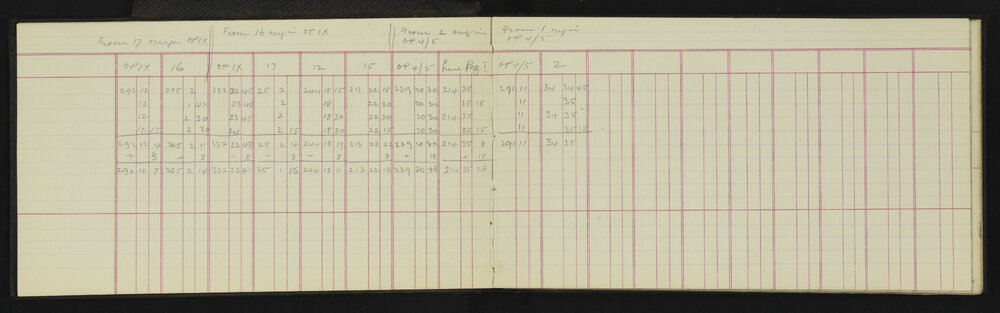 From 17 origin OP IX From 16 origin OP IX From 2 origin From 1 origin
OP 4/5 OP 4/5
OP IX 16 OP IX 17 12 15 OP 4/5 Line Peg I OP 4/5 2
292 12 205 2 332 23 45 25 2 244 18 15 213 22 15 239 20 30 214 35 291 11 34 34 45
12 1 45 23 45 2 18 22 30 20 30 35 15 11 35
12 2 30 23 45 2 18 30 22 30 20 30 214 35 11 34 35
12 15 2 30 24 2 15 18 30 22 15 20 30 35 15 11 35 15
292 12 4 205 2 11 332 23 49 25 2 4 244 18 19 213 22 22 239 20 30 214 35 8 291 11 34 35
+ 3 + 3 - 8 - 8 - 8 8 + 18 + 18
292 12 7 205 2 14 332 23 41 25 1 56 244 18 11 213 22 14 239 20 48 214 35 26